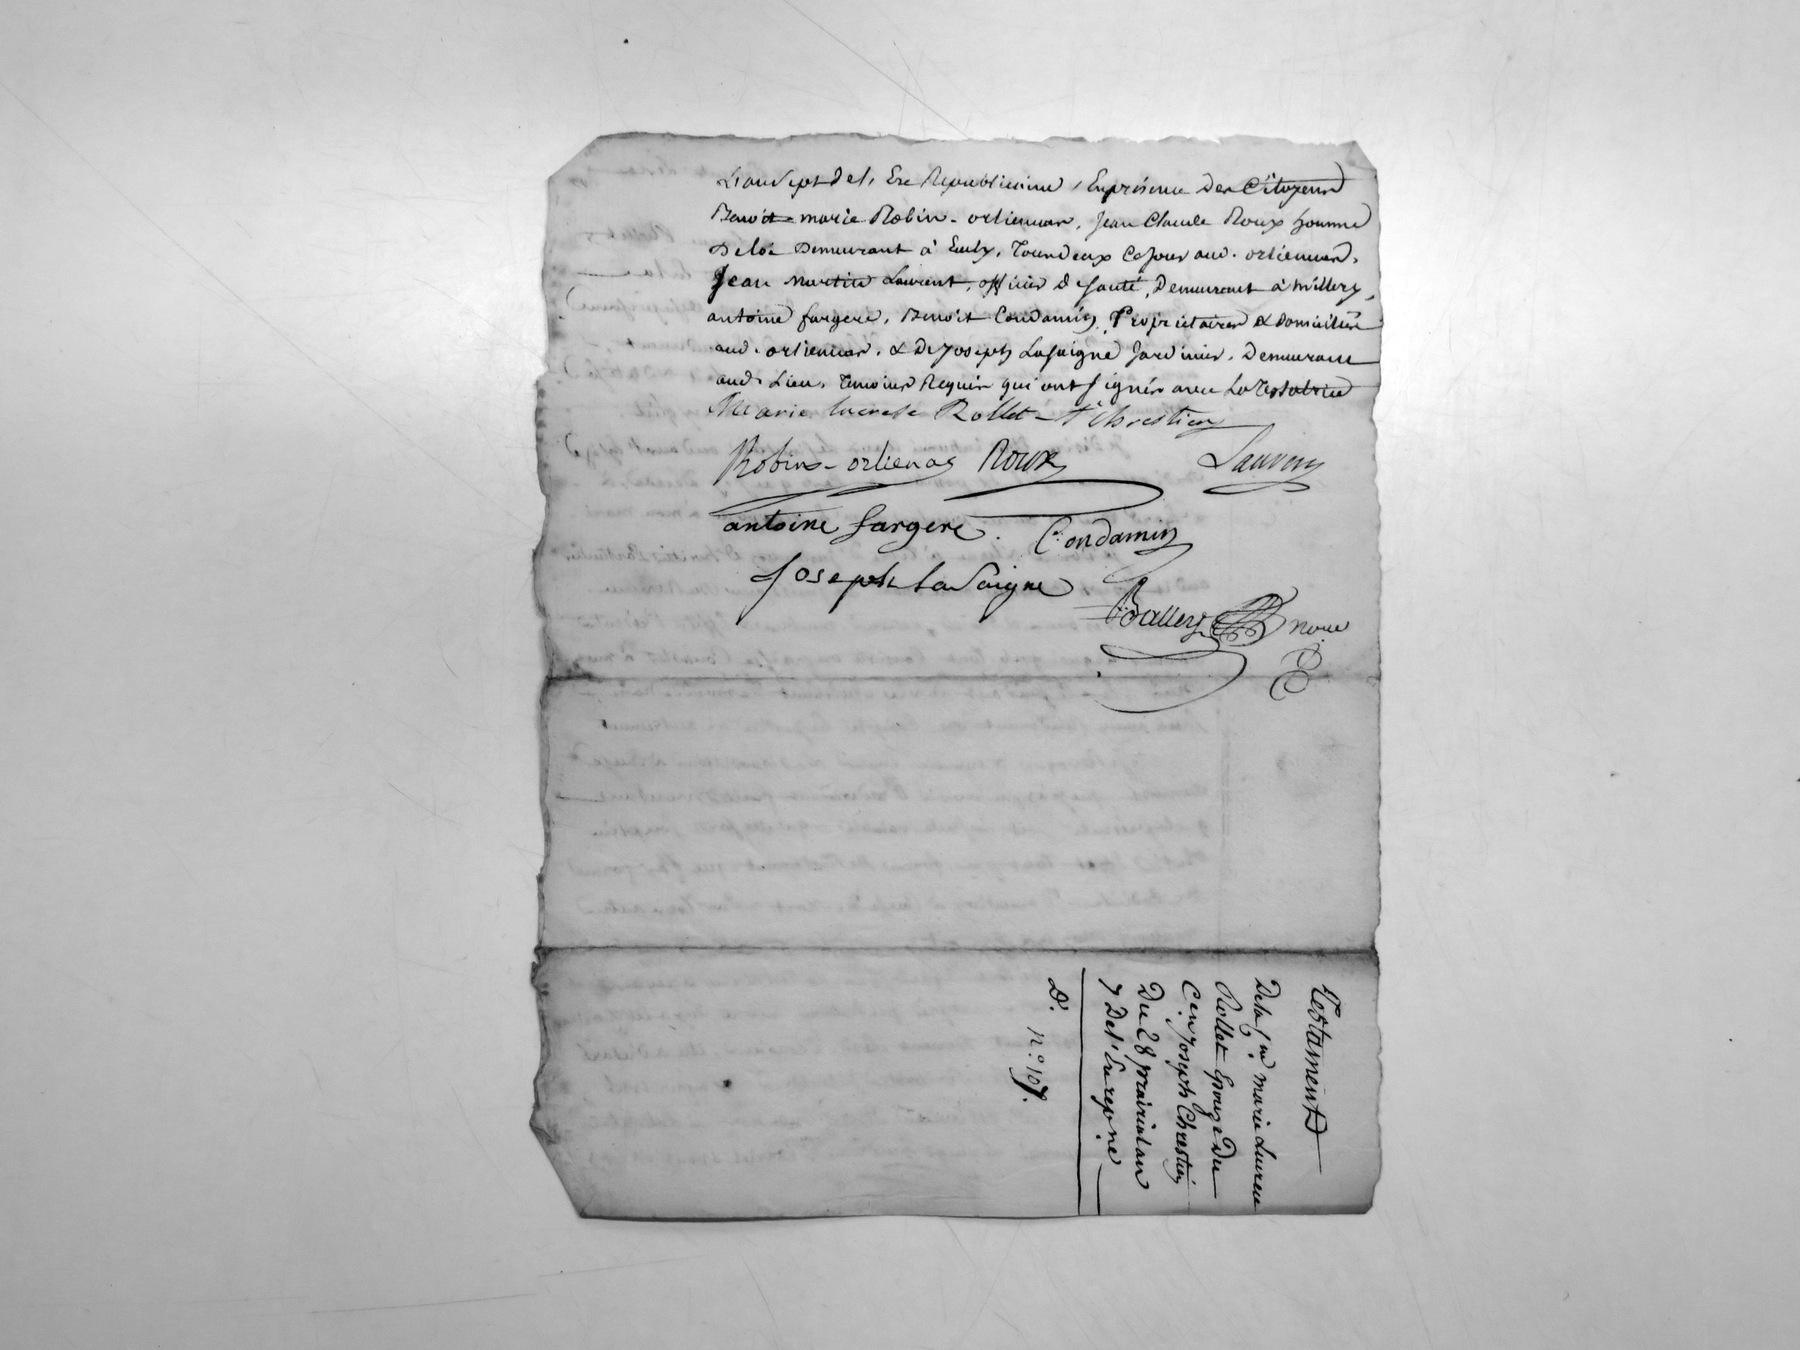 L'an Sept de l'Ere Republicaine, En présence des Citoyens
Benoit marie Robin-orlienas, Jean Claude Roux homme
De loi Demeurant à Eully, Tourdeux Ce jour aud. orlienas,
Jean martin Laurent, officier de santé, Demeurant à Millery,
antoine fargere, Benoit Condamin, Propriétaires & domiciliés
aud. orlienas, & De Joseph Lasaigne Jardinier, Demeurant
aud. Lieu, Temoins Requis qui ont signés avec La Testatrice
Marie lucrese Rollet - Chrestien
Robin-orlienas Roux Laurent
antoine fargere. Condamin
Joseph La Saigne
Ballery nore
Testament
De la f.me marie Lucrece
Rollet Epouze Du
C.en Joseph Chrestien
Du 28 prairial an
7 De l'Ere rep.ne
D. n.o 107.